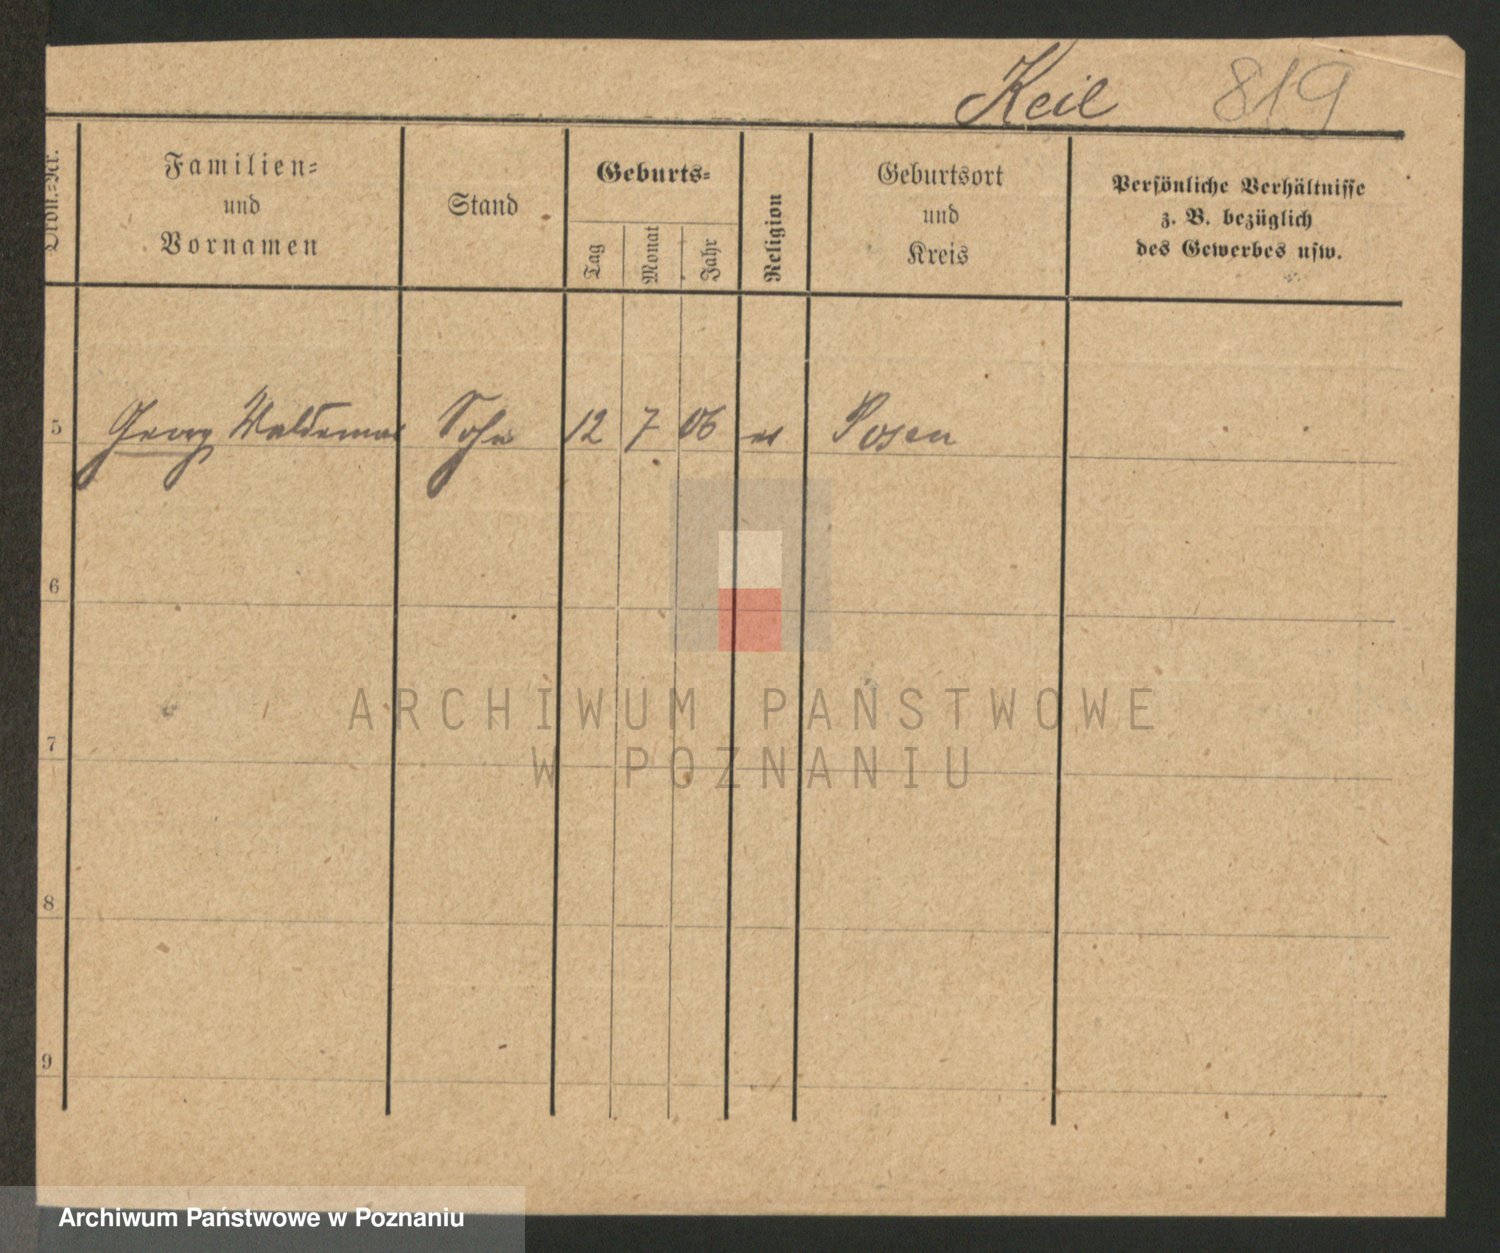 Keil 819
Ordn.-Nr.
Familien-
und
Vornamen
Stand
Geburts-
Tag
Monat
Jahr
Religion
Geburtsort
und
Kreis
Persönliche Verhältnisse
z. B. bezüglich
des Gewerbes usw.
5 Georg Waldemar Sohn 12 7 06 ev Posen
6
7
8
9
ARCHIWUM PAŃSTWOWE
W POZNANIU
Archiwum Państwowe w Poznaniu